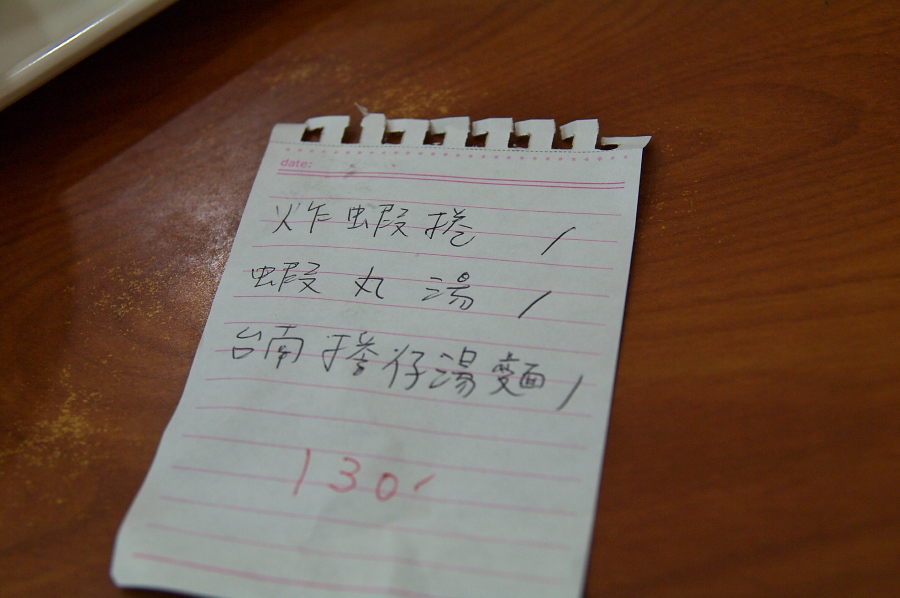 date:
炸蝦捲 /
蝦丸湯 /
台南担仔湯麵 /
130